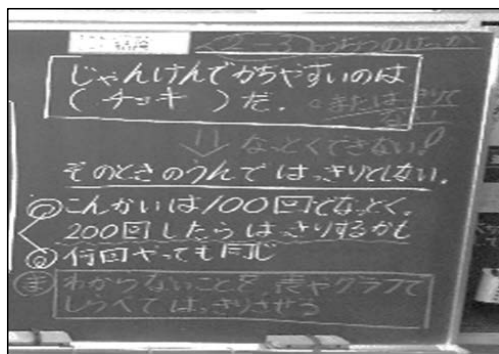 じゃんけんでかちやすいのは
（チョキ）だ。
なっとくできない!
そのときのうんではっきりとしない。
こんかいは100回でなっとく。
200回したらはっきりするかも
何回やっても同じ
ま わからないことを、表やグラフで
しらべてはっきりさせる